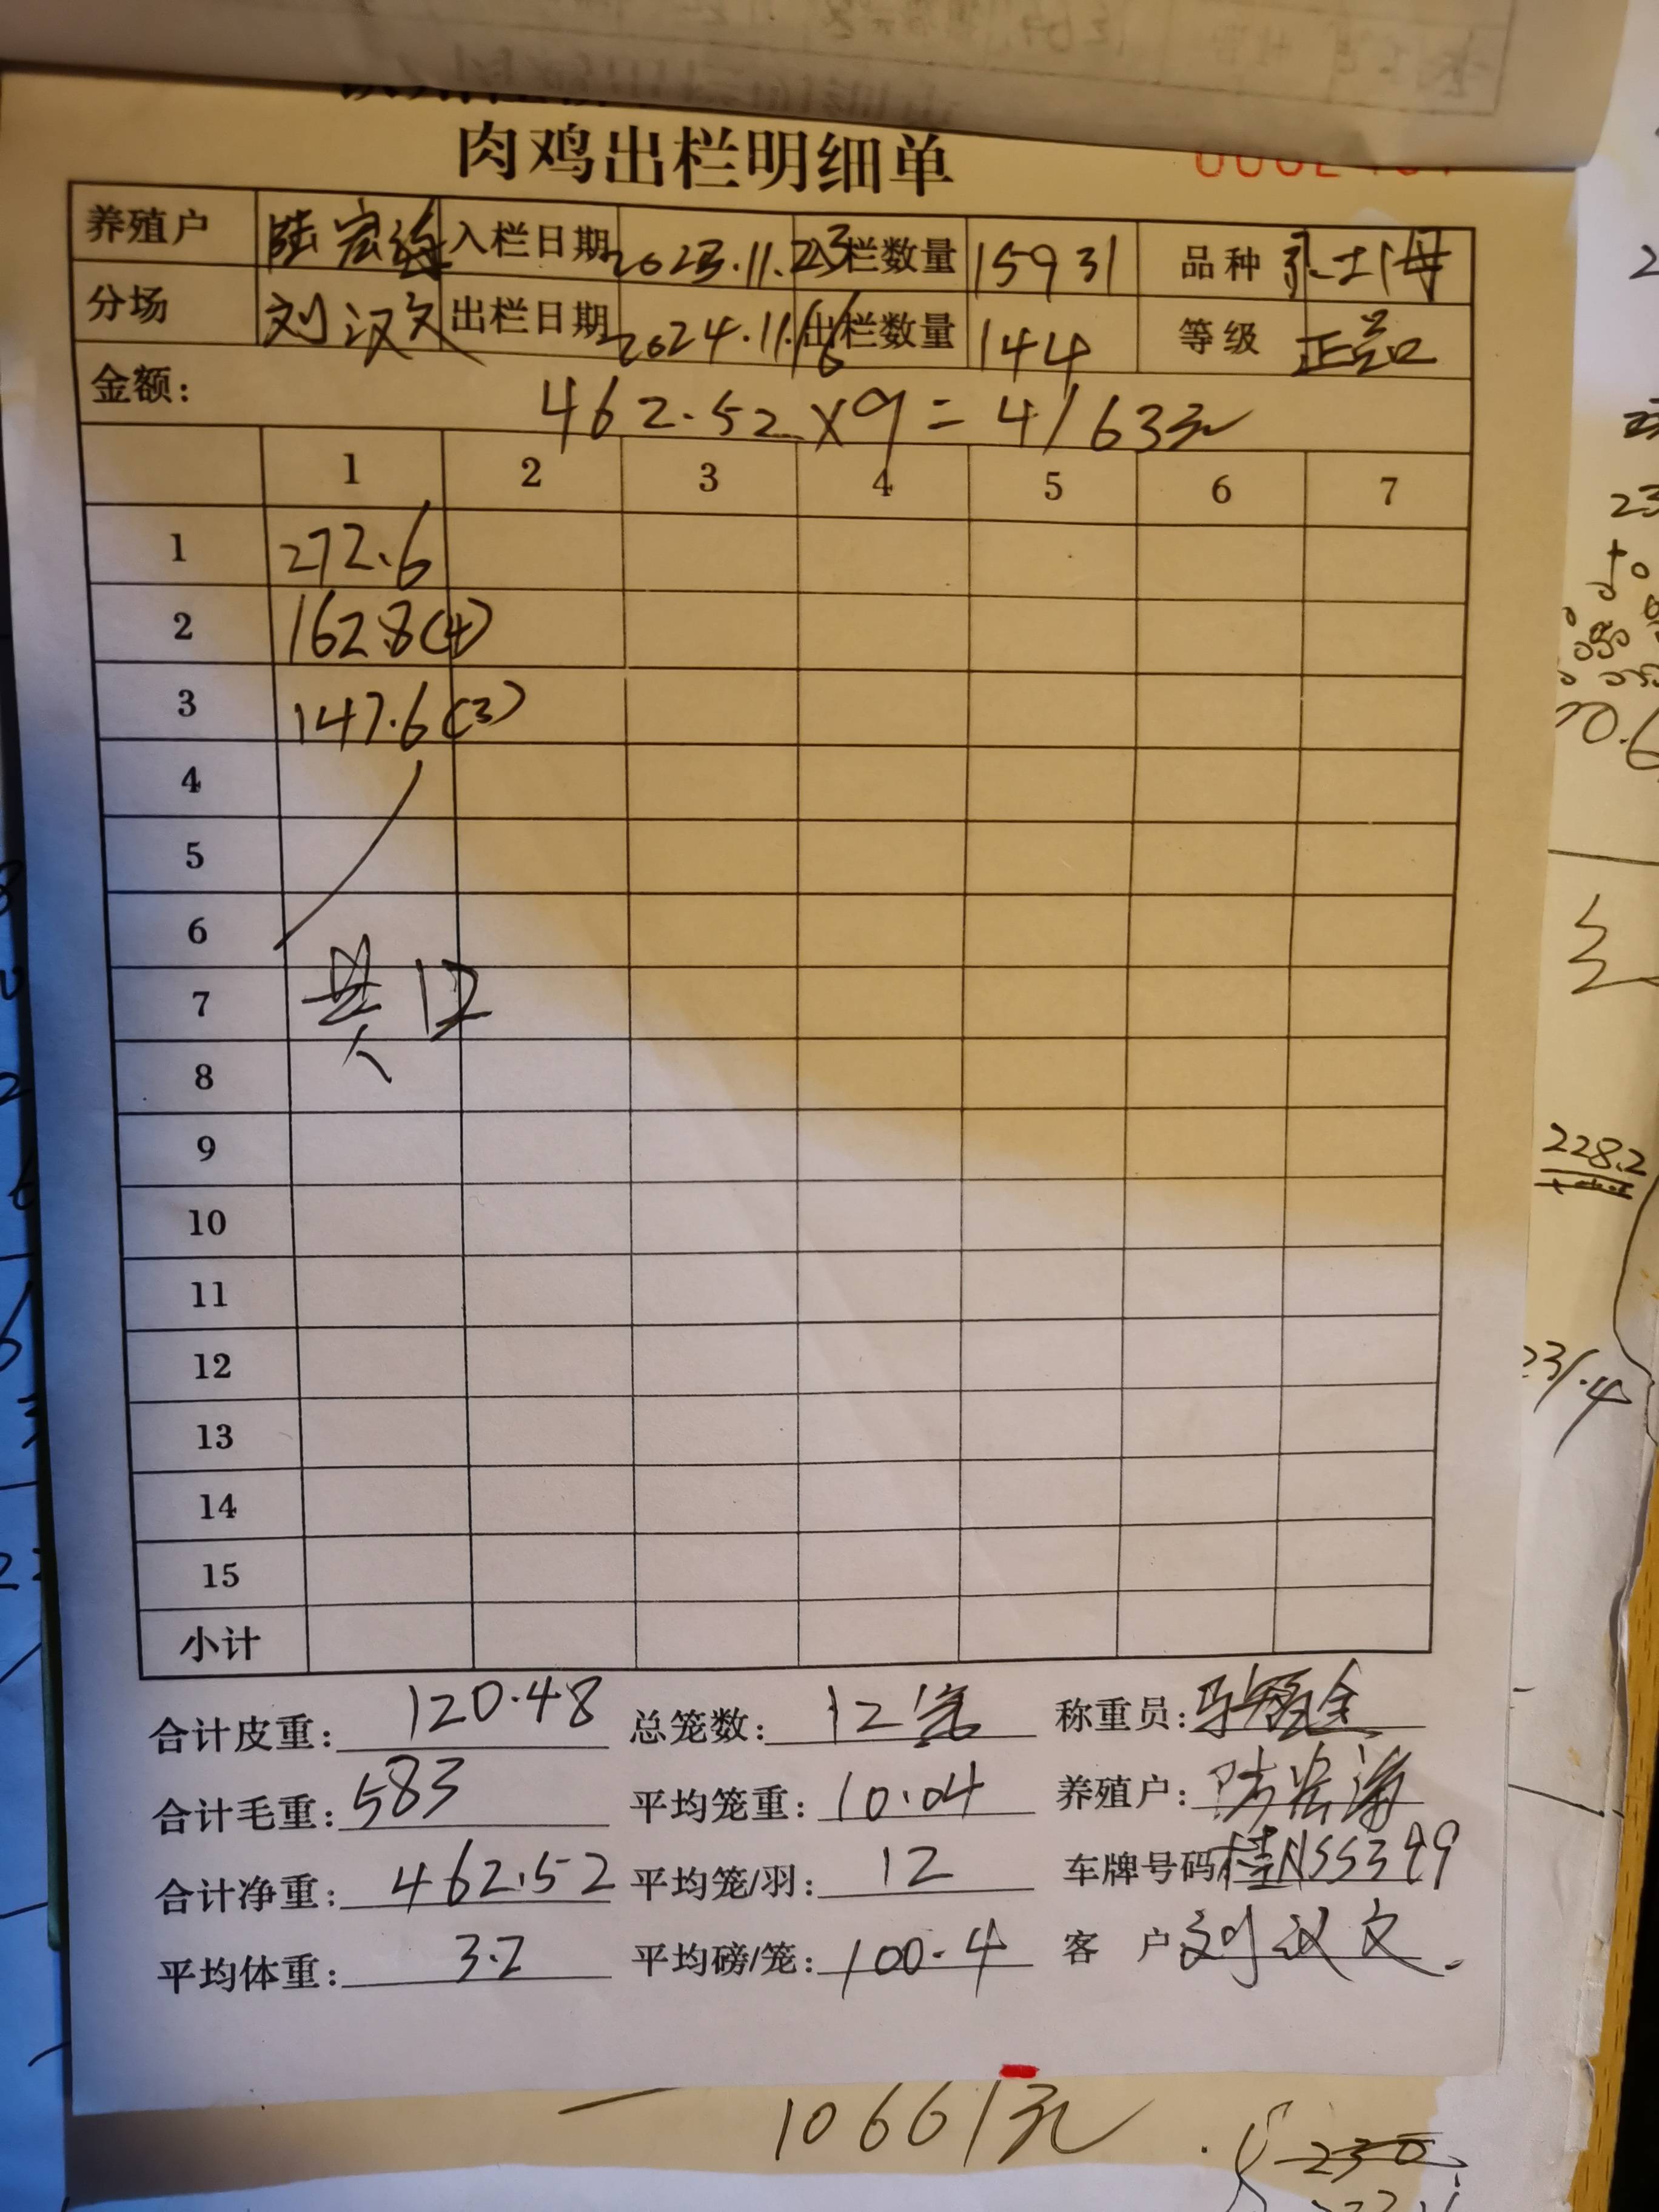 肉鸡出栏明细单
养殖户 陆宏海 入栏日期 2023.11.23 入栏数量 15931 品种
分场 刘汉文 出栏日期 2024.11.16 出栏数量 144 等级 正品
金额: 462.52×9=4163元
1 2 3 4 5 6 7
1 272.6
2 162.8(4)
3 147.6(3)
4
5
6
7 共12
8
9
10
11
12
13
14
15
小计
合计皮重: 120.48 总笼数: 12 称重员:
合计毛重: 583 平均笼重: 10.04 养殖户: 陆宏海
合计净重: 462.52 平均笼/羽: 12 车牌号码 桂NSS399
平均体重: 3.2 平均磅/笼: 100.4 客户 刘汉文.
10661元
228.2
231.4